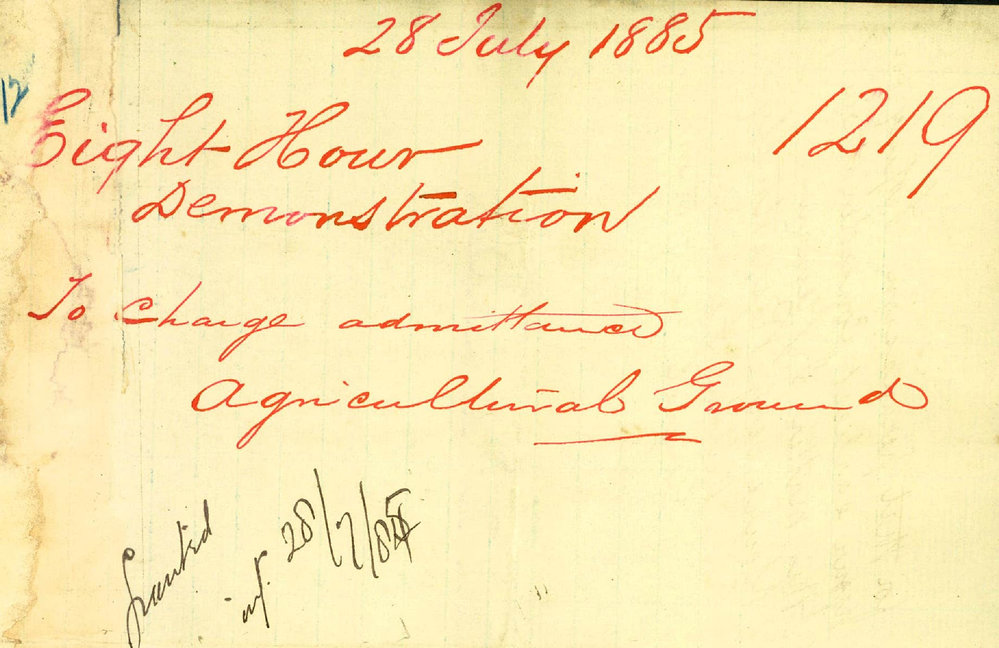 28 July 1885
12
Eight Hour 1219
Demonstration
To charge admittance
Agricultural Ground
Granted
inf. 28/7/85